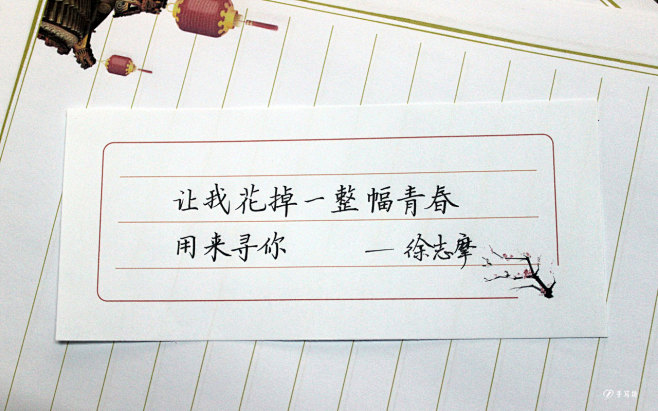 让我花掉一整幅青春
用来寻你 — 徐志摩
手写馆